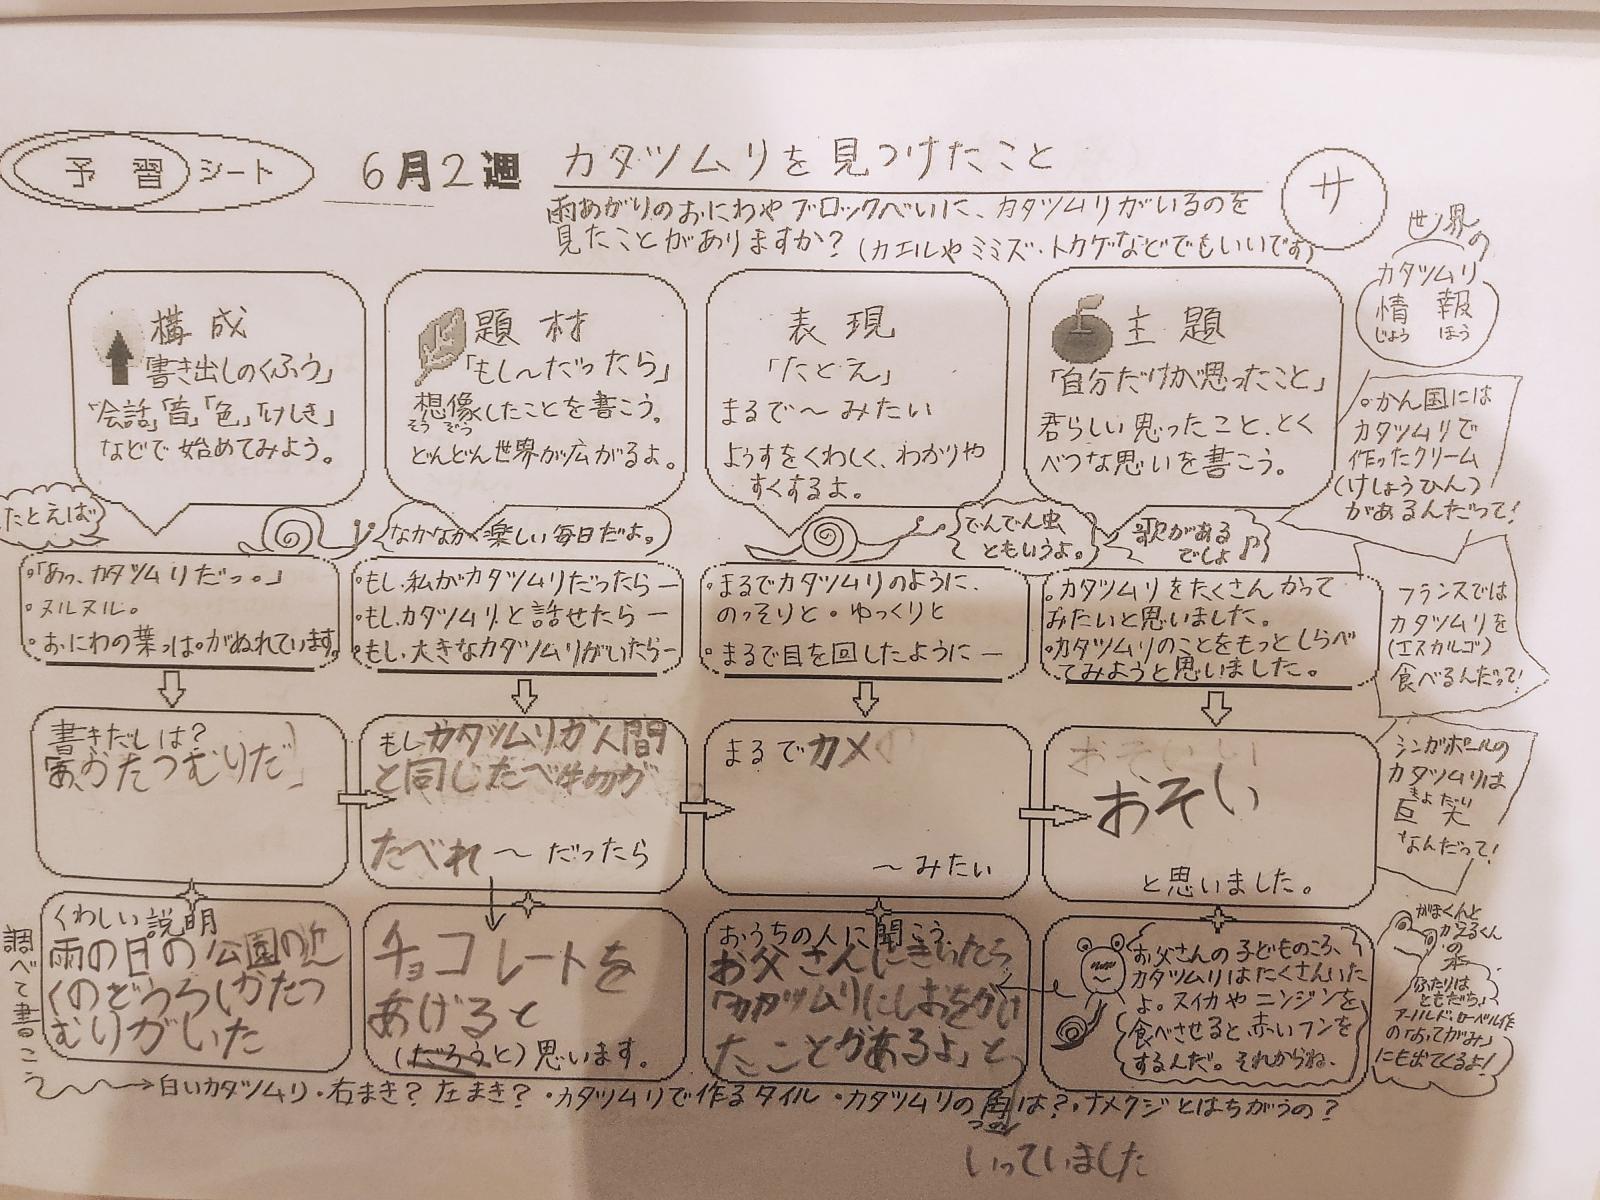 予習シート
6月2週
カタツムリを見つけたこと
サ
雨あがりのおにわやブロックべいに、カタツムリがいるのを
見たことがありますか？(カエルやミミズ・トカゲなどでもいいです)
構成
「書き出しのくふう」
「会話」「音」「色」「けしき」
などで始めてみよう。
題材
「もし〜だったら」
想像したことを書こう。
そうぞう
どんどん世界が広がるよ。
表現
「たとえ」
まるで〜みたい
ようすをくわしく、わかりや
すくするよ。
主題
「自分だけが思ったこと」
君らしい思ったこと、とく
べつな思いを書こう。
世界の
カタツムリ
情報
じょうほう
。かん国には
カタツムリで
作ったクリーム
(けしょうひん)
があるんだって！
たとえば
なかなか楽しい毎日だよ。
でんでん虫
ともいうよ。
歌がある
でしょ♪
・「あっ、カタツムリだっ。」
・ヌルヌル。
・おにわの葉っぱがぬれています。
・もし、私がカタツムリだったら―
・もし、カタツムリと話せたら―
・もし、大きなカタツムリがいたら―
・まるでカタツムリのように、
のっそりと・ゆっくりと
・まるで目を回したように―
・カタツムリをたくさんかって
みたいと思いました。
・カタツムリのことをもっとしらべ
てみようと思いました。
フランスでは
カタツムリを
(エスカルゴ)
食べるんだって！
書きだしは？
「あ、おたつむりだ」
もしカタツムリが人間
と同じたべ物が
たべれ〜だったら
まるでカメ
〜みたい
おそい
と思いました。
シンガポールの
カタツムリは
きょだい
巨大
なんだって！
調べて書こう
くわしい説明
雨の日の公園の近
くのどうろにかたつ
むりがいた
チョコレートを
あげると
(だろうと)思います。
おうちの人に聞こう。
お父さんにきいたら
「カタツムリにしおをかけ
たことがあるよ」と
いっていました
お父さんの子どものころ、
カタツムリはたくさんいた
よ。スイカやニンジンを
食べさせると、赤いフンを
するんだ。それからね、
がまくんと
かえるくん
の本
「ふたりは
ともだち」
アーノルド・ローベル作
の「おてがみ」
にも出てくるよ！
白いカタツムリ・右まき？左まき？・カタツムリで作るタイル・カタツムリの角は？・ナメクジとはちがうの？
つの